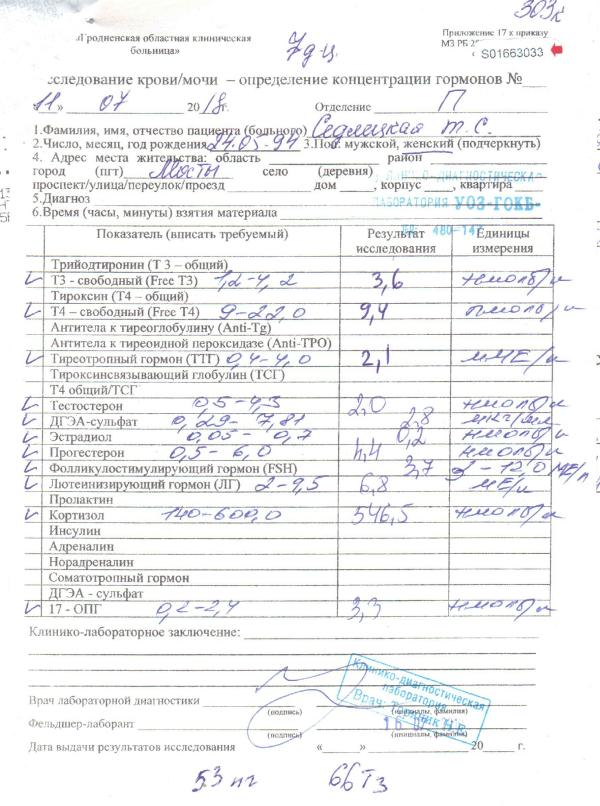 303к
«Гродненская областная клиническая
больница»
7 д.ц.
Приложение 17 к приказу
МЗ РБ
S01663033
сследование крови/мочи – определение концентрации гормонов №
«11» 07 2018г. Отделение П
1.Фамилия, имя, отчество пациента (больного) Седлецкая Т.С.
2.Число, месяц, год рождения 24.05-94 3.Пол: мужской, женский (подчеркнуть)
4. Адрес места жительства: область район
город (пгт) Мосты село (деревня)
проспект/улица/переулок/проезд дом , корпус , квартира
5.Диагноз
ЛАБОРАТОРИЯ УОЗ-ГОКБ-
6.Время (часы, минуты) взятия материала
480-147
Показатель (вписать требуемый) Результат исследования Единицы измерения
Трийодтиронин (Т 3 – общий)
Т3 - свободный (Free T3) 1,2-4,2 3,6 нмоль/л
Тироксин (Т4 – общий)
Т4 – свободный (Free T4) 9-22,0 9,4 пмоль/л
Антитела к тиреоглобулину (Anti-Tg)
Антитела к тиреоидной пероксидазе (Anti-TPO)
Тиреотропный гормон (ТТГ) 0,4-4,0 2,1 мМЕ/л
Тироксинсвязывающий глобулин (ТСГ)
Т4 общий/ТСГ
Тестостерон 0,5-4,3 2,0 нмоль/л
ДГЭА-сульфат 0,29-7,81 2,8 мкг/мл
Эстрадиол 0,05-0,7 0,2 нмоль/л
Прогестерон 0,5-6,0 4,4 нмоль/л
Фолликулостимулирующий гормон (FSH) 3,7 2-12,0 МЕ/л
Лютеинизирующий гормон (ЛГ) 2-9,5 6,8 МЕ/л
Пролактин
Кортизол 140-600,0 546,5 нмоль/л
Инсулин
Адреналин
Норадреналин
Соматотропный гормон
ДГЭА - сульфат
17 - ОПГ 0,2-2,4 3,3 нмоль/л
Клинико-лабораторное заключение:
Клинико-диагностическая
лаборатория
Врач:
Врач лабораторной диагностики
(подпись) (инициалы, фамилия)
Фельдшер-лаборант
(подпись) (инициалы, фамилия)
Дата выдачи результатов исследования «___» 20 г.
53 кг 66 Тз